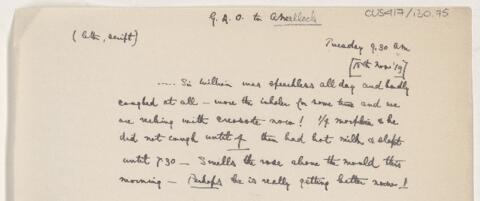 G. R. O. to A Malloch
CUS417/130.75
(letter, script)
Tuesday 9.30 am
[18th Nov '19]
..... Sir William was speechless all day and hardly
coughed at all – wore the inhaler for some time and we
are reeking with creosote now! 1/4 morphia & he
did not cough until 4 then had hot milk & slept
until 7.30 – Smells the rose above the mould this
morning – Perhaps he is really getting better now!